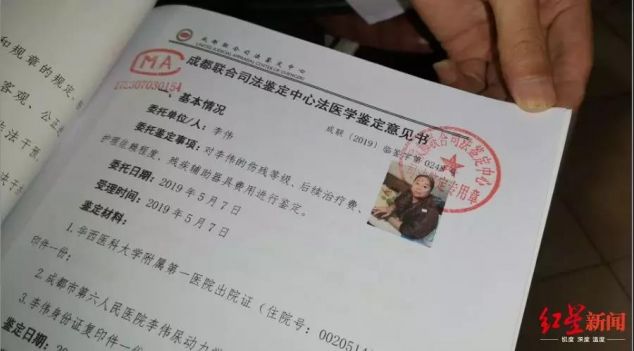 和规章的规定,
客观、公正
法干预
成都联合司法鉴定中心
UNITED JUDICIAL APPRAISAL CENTER OF CHENGDU
MA
成都联合司法鉴定中心法医学鉴定意见书
成联(2019)临鉴字第
一、基本情况
委托单位/人:李伟
委托鉴定事项:对李伟的伤残等级、后续治疗费、
护理依赖程度、残疾辅助器具费用进行鉴定。
委托日期:2019年5月7日
受理时间:2019年5月7日
鉴定材料:
1.华西医科大学附属第一医院出院证(住院号:002051
印件一份;
2.成都市第六人民医院李伟尿动力学
3.李伟身份证复印件一份
鉴定日期:
联合司法鉴定中心
专用章
红星新闻
锐度 深度 温度